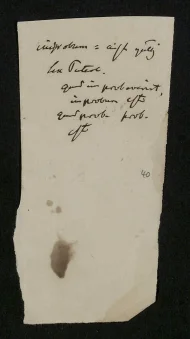 improbum =
lex Petel.
quod improbaverit,
improbum esto
quod probe prob.
esto
40